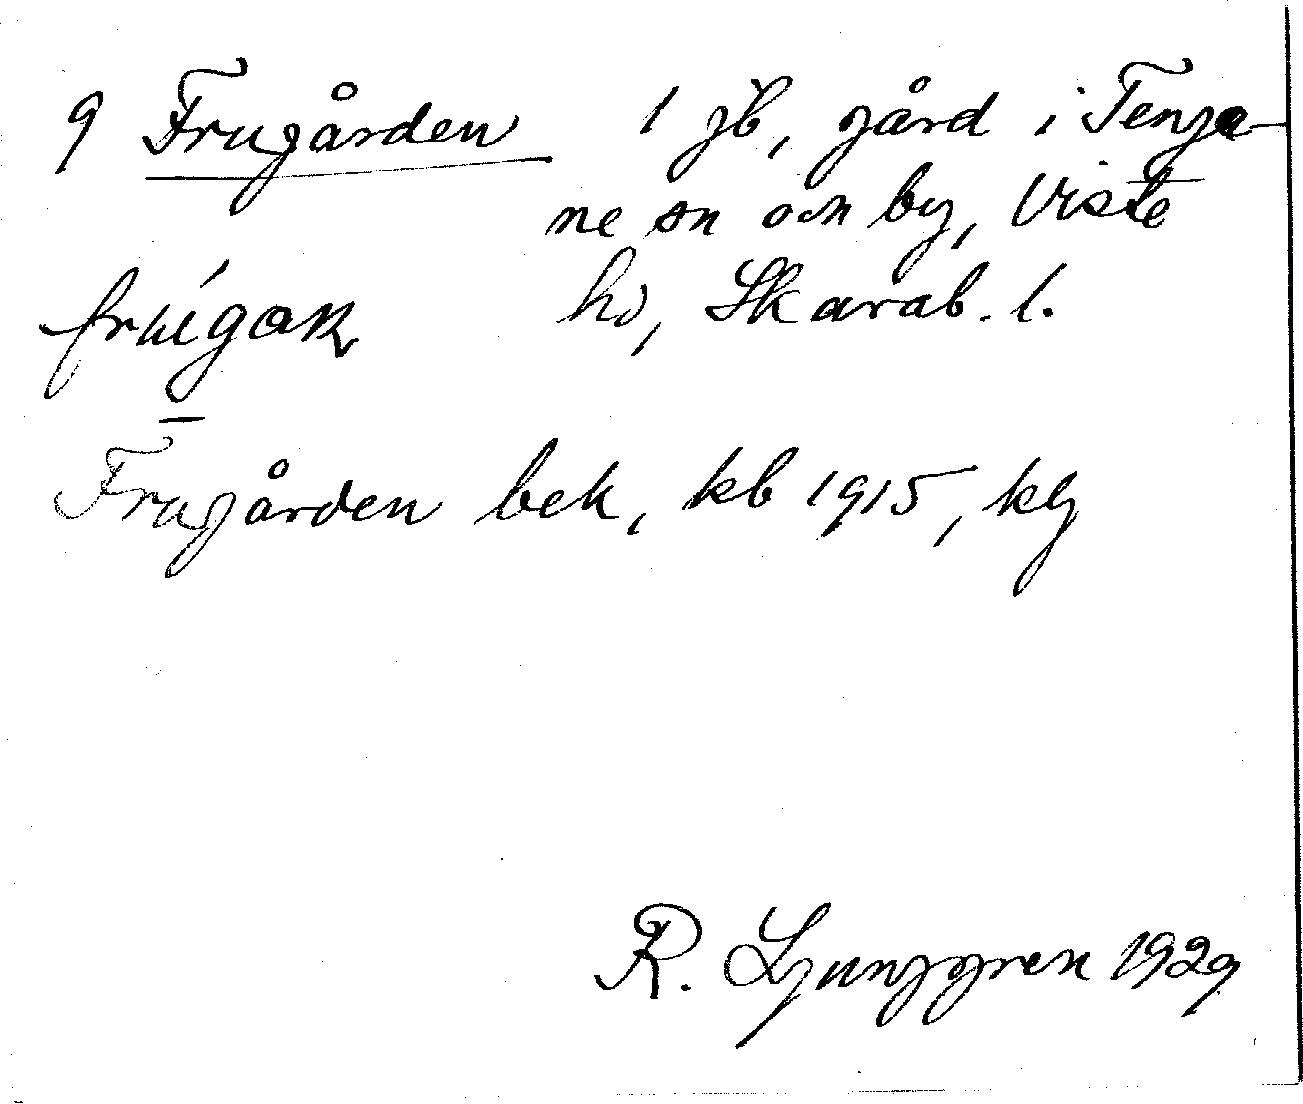 9 Frugården 1 jb, gård i Tenga-
ne sn och by, Viste
hd, Skarab. l.
Frugården bek, kb 1915, klg
R. Ljunggren 1929